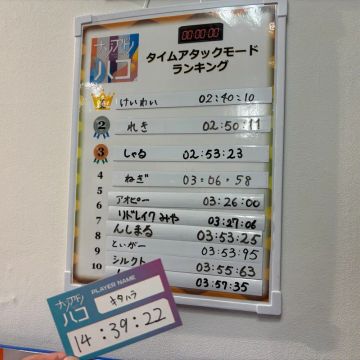 00:00:00
ナゾアドハコ
タイムアタックモード
ランキング
1 けいわい 02:40:10
2 れき 02:50:11
3 しゃる 02:53:23
4 ねぎ 03:06:58
5 アオピー 03:26:00
6 リドレイクみや 03:27:06
7 んしまる 03:53:25
8 とぃがー 03:53:95
9 シルクト 03:55:63
10 03:57:35
ハコ
PLAYER NAME
キタハラ
14:39:22